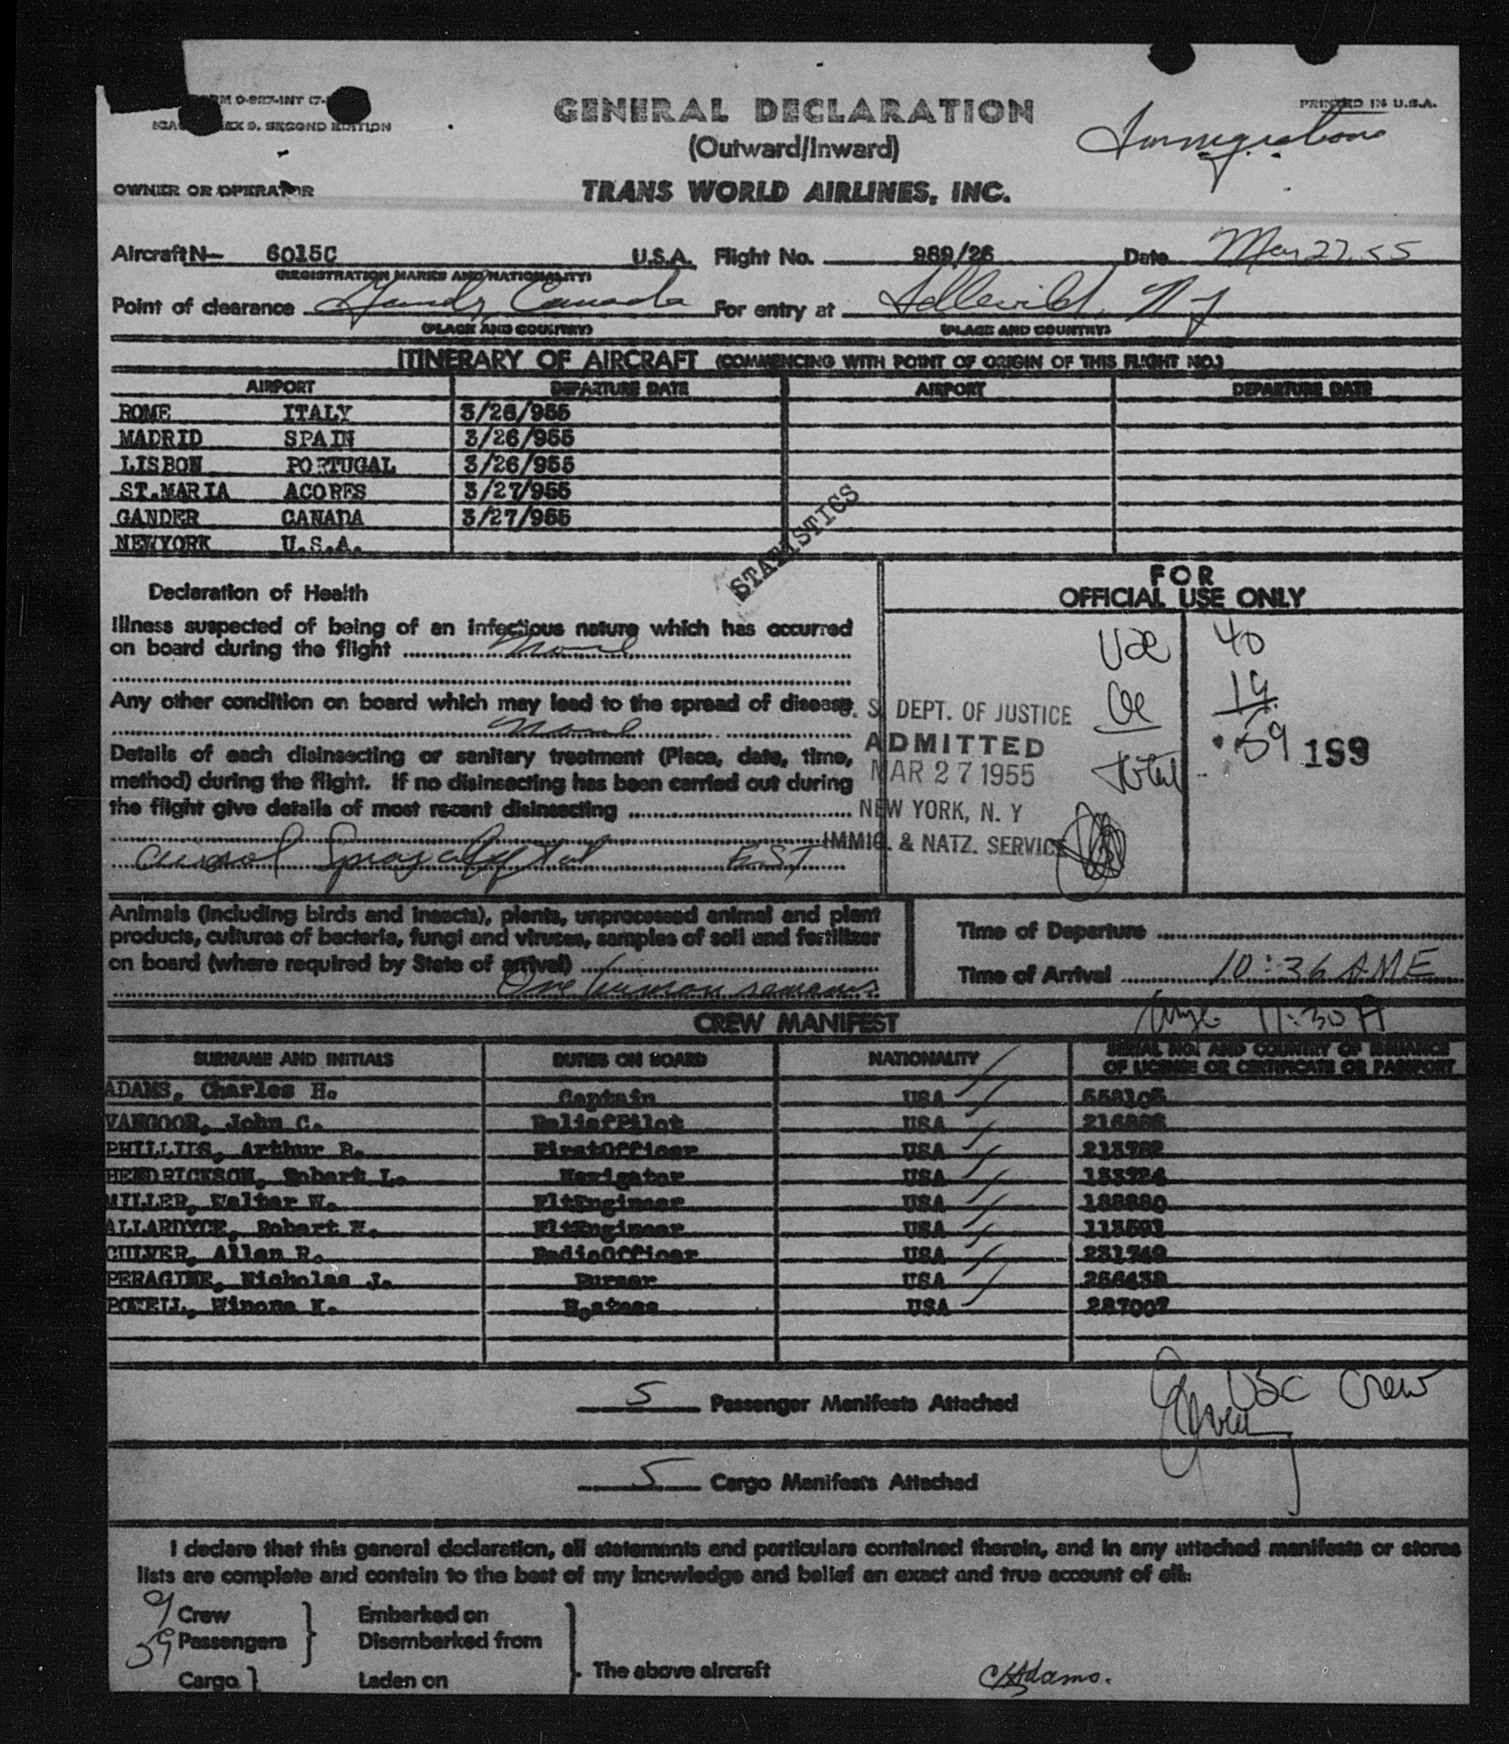 GENERAL DECLARATION
PRINTED IN U.S.A.
SECOND EDITION
(Outward/Inward)
Immigration
OWNER OR OPERATOR TRANS WORLD AIRLINES, INC.
Aircraft N- 6015C U.S.A. Flight No. 989/26 Date Mar 27 55
(REGISTRATION MARKS AND NATIONALITY)
Point of clearance Gander Canada For entry at Idlewild, NY
(PLACE AND COUNTRY) (PLACE AND COUNTRY)
ITINERARY OF AIRCRAFT (COMMENCING WITH POINT OF ORIGIN OF THIS FLIGHT NO.)
AIRPORT DEPARTURE DATE AIRPORT DEPARTURE DATE
ROME ITALY 3/26/955
MADRID SPAIN 3/26/955
LISBON PORTUGAL 3/26/955
ST.MARIA ACORES 3/27/955
GANDER CANADA 3/27/955
NEWYORK U.S.A.
STATISTICS
Declaration of Health
Illness suspected of being of an infectious nature which has occurred
on board during the flight None
Any other condition on board which may lead to the spread of disease
None
Details of each disinsecting or sanitary treatment (Place, date, time,
method) during the flight. If no disinsecting has been carried out during
the flight give details of most recent disinsecting
EST
FOR
OFFICIAL USE ONLY
40
19
Total 59 199
U. S. DEPT. OF JUSTICE
ADMITTED
MAR 27 1955
NEW YORK, N. Y
IMMIG. & NATZ. SERVICE
Animals (including birds and insects), plants, unprocessed animal and plant
products, cultures of bacteria, fungi and viruses, samples of soil and fertilizer
on board (where required by State of arrival)
One human remains
Time of Departure
Time of Arrival 10:36 AME
11:30 A
CREW MANIFEST
SURNAME AND INITIALS DUTIES ON BOARD NATIONALITY SERIAL NO. AND COUNTRY OF ISSUANCE
OF LICENSE OR CERTIFICATE OR PASSPORT
ADAMS, Charles H. Captain USA
VANGOOR, John C. ReliefPilot USA
PHILLIIS, Arthur R. FirstOfficer USA
HENDRICKSON, Robert L. Navigator USA
MILLER, Walter W. FltEngineer USA
ALLARDYCE, Robert FltEngineer USA
CULVER, Allen R. RadioOfficer USA
PERAGINE, Nicholas J. Purser USA 256438
POWELL, Winona K. Hostess USA 287007
5 Passenger Manifests Attached
USC Crew
5 Cargo Manifests Attached
I declare that this general declaration, all statements and particulars contained therein, and in any attached manifests or stores
lists are complete and contain to the best of my knowledge and belief an exact and true account of all:
9 Crew Embarked on
59 Passengers Disembarked from
Cargo Laden on The above aircraft
CHAdams.